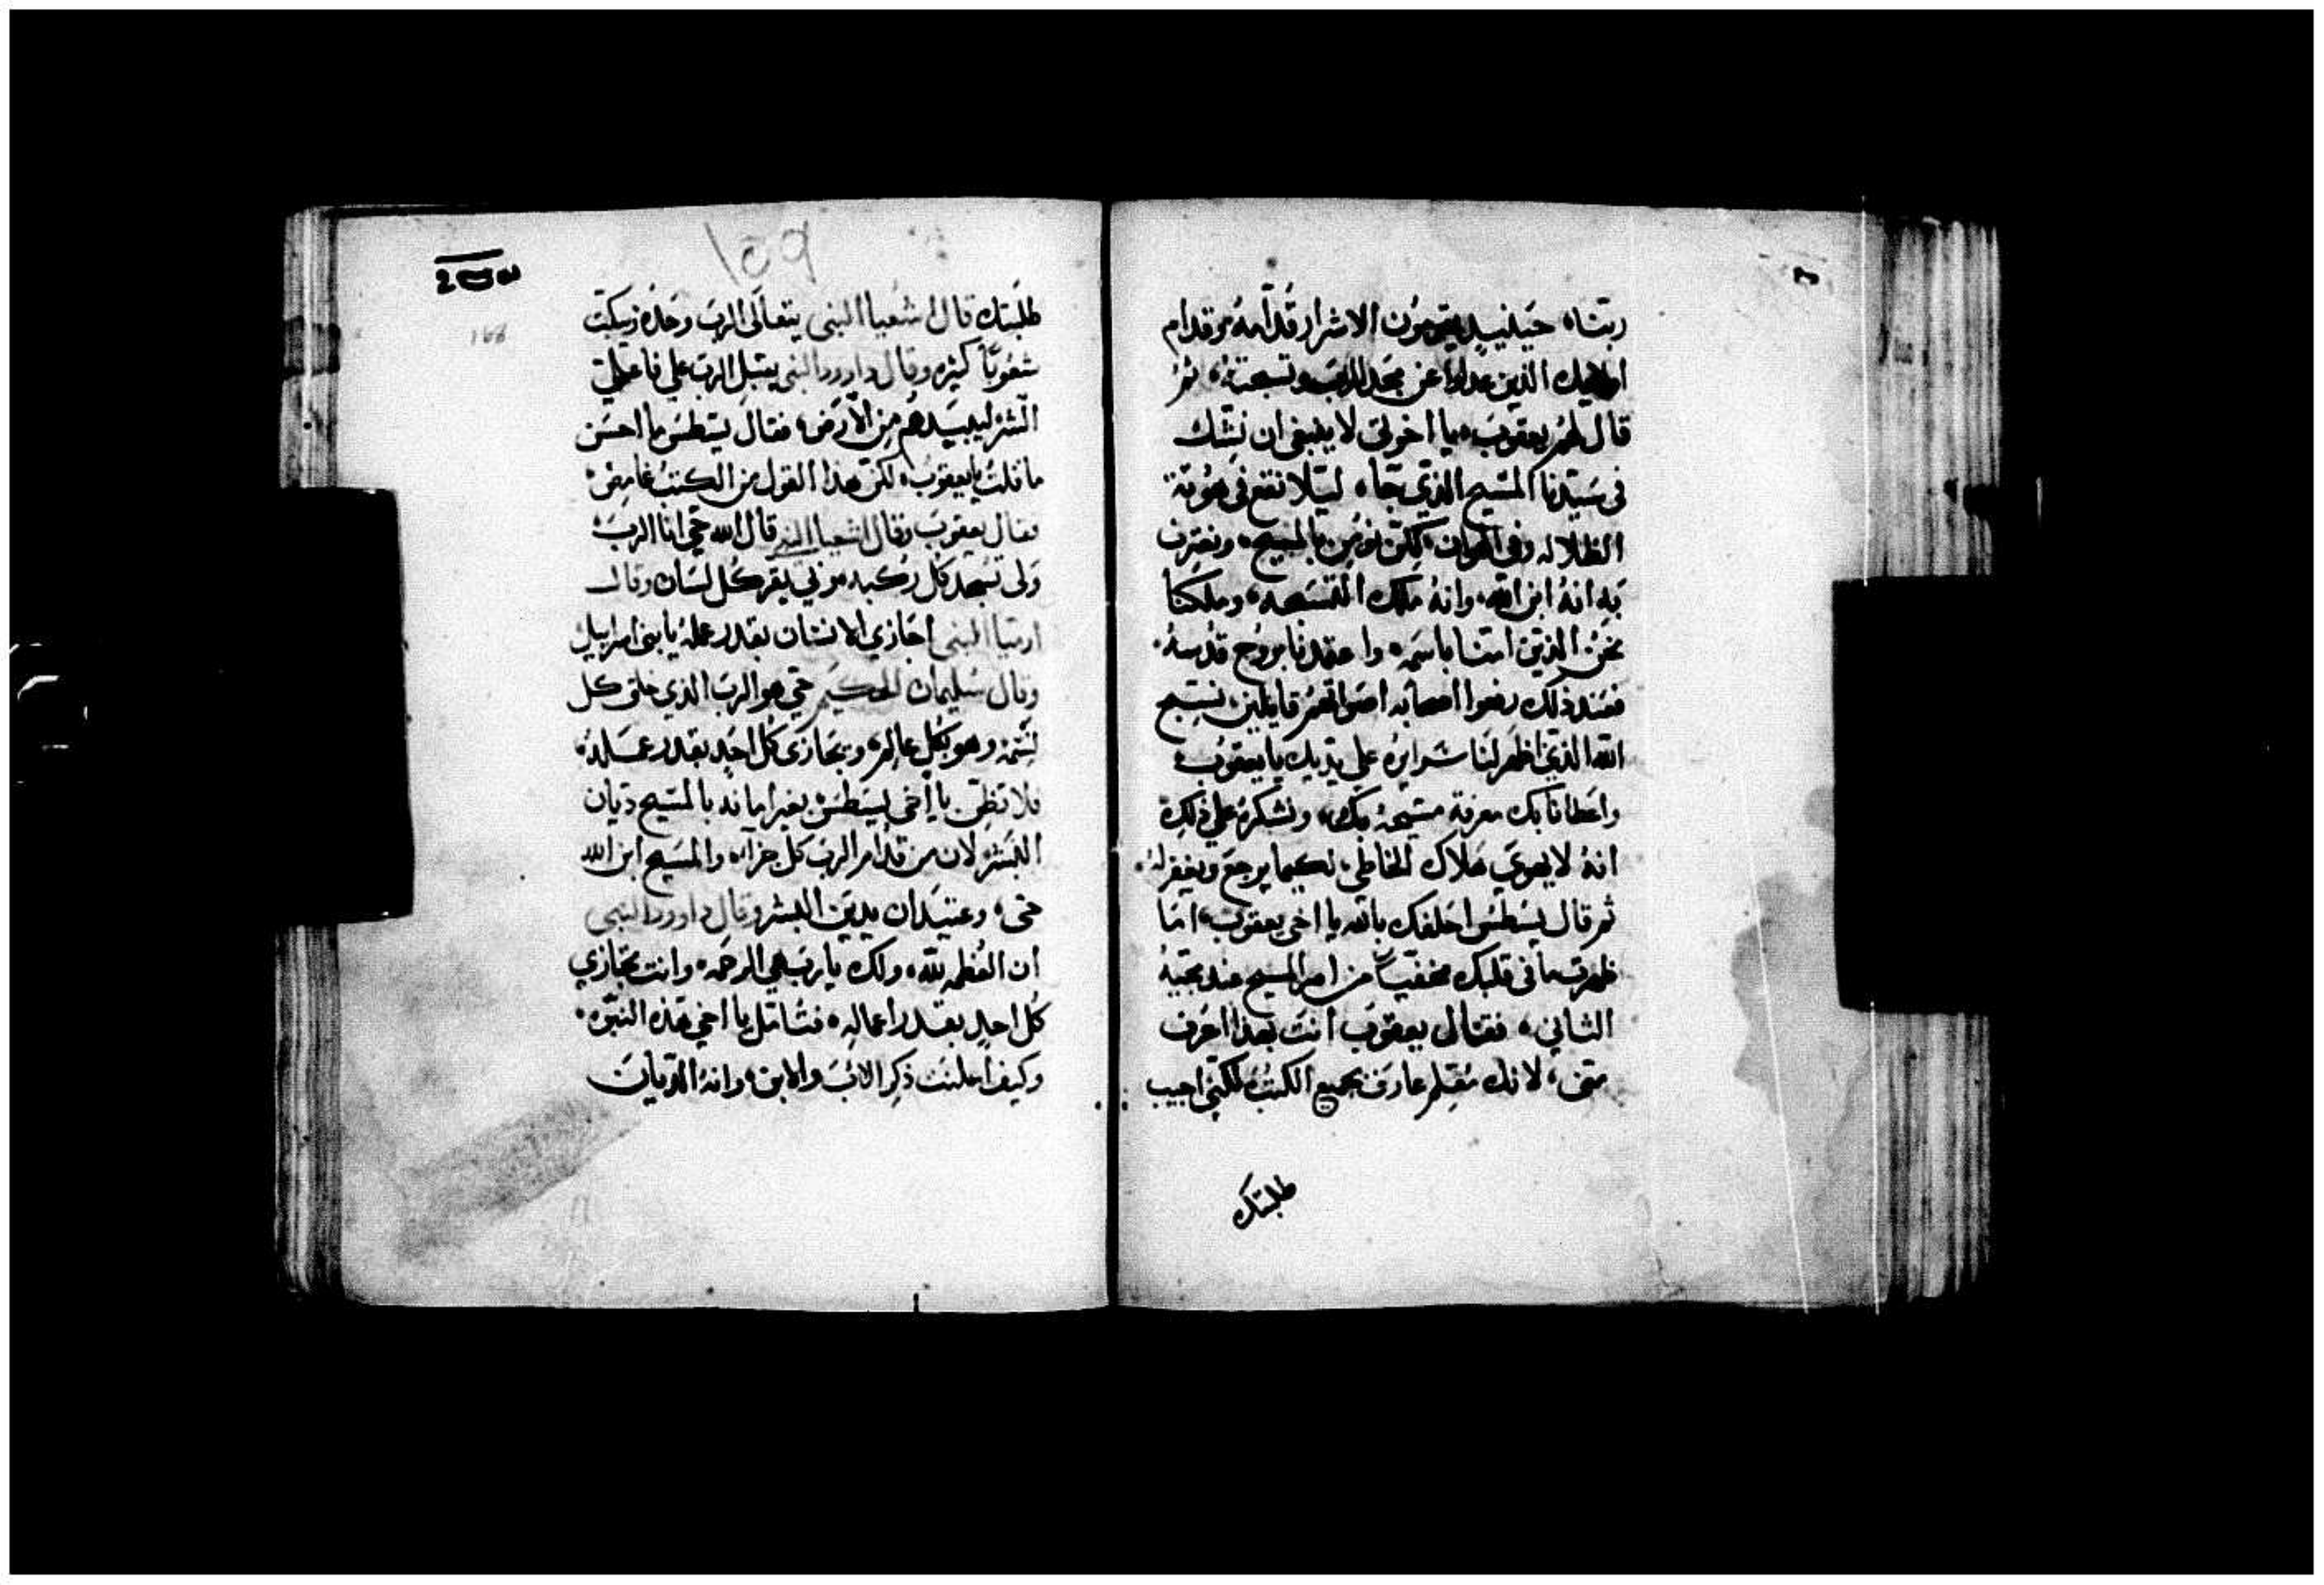 ربنا، حينيد يقومون الاشرار قدامه وقدام
الذين عدلوا عن مجد الرب وتسبحته، ثم
قال لهم يعقوب، يا اخوتي لا ينبغي ان نشك
في سيدنا المسيح الذي جاء، ليلا نقع في هوتة
الظلاله وفي الهوان، لكن نومن بالمسيح، ونعترف
به انه ابن الله، وانه ملك، وملكنا
نحن الذين امنا باسمه، واعتمدنا بروح قدسه،
فعند ذلك رفعوا اصحابه اصواتهم قايلين نسبح
الله الذي اظهر لنا سرايره علي يديك يا يعقوب،
واعطانا بك معرفة مسيحه، ونشكره علي ذلك
انه لا يهوي هلاك الخاطي، لكيما يرجع ويغفر له،
ثم قال يسطس احلفك بالله يا اخي يعقوب، اما
ظهرت ما في قلبك مخفيا من امر المسيح عند مجيه
الثاني، فقال يعقوب انت بهذا اعرف
مني، لانك معلم عارف بجميع الكتب لكني اجيب
طلبتك
طلبتك قال اشعيا النبي يتعالي الرب وحده ويبكت
شعوبا كثيره وقال داوود النبي يقبل الرب علي فاعلي
الشر ليبيدهم من الارض، فقال يسطس ما احسن
ما قلت يا يعقوب، لكن هذا القول من الكتب غامض،
فقال يعقوب وقال اشعيا النبي قال الله حي انا الرب،
ولي تسجد كل ركبه، وبي يقر كل لسان وقال
ارميا النبي اجازي الانسان بقدر عمله يا بني اسراييل
وقال سليمان الحكيم حي هو الرب الذي خلق كل
نسمه وهو بكل عالم، ويجازي كل احد بقدر عمله،
فلا تظن يا اخي يسطس، بغير امانه بالمسيح ديان
البشر، لان من قدام الرب كل جزاء، والمسيح ابن الله
حي، وعتيد ان يدين البشر وقال داوود النبي
ان العظمه لله، ولك يا رب هي الرحمه، وانت تجازي
كل احد بقدر اعماله، فتامل يا اخي هذه النبوه،
وكيف اعلنت ذكر الاب والابن، وانه الديان